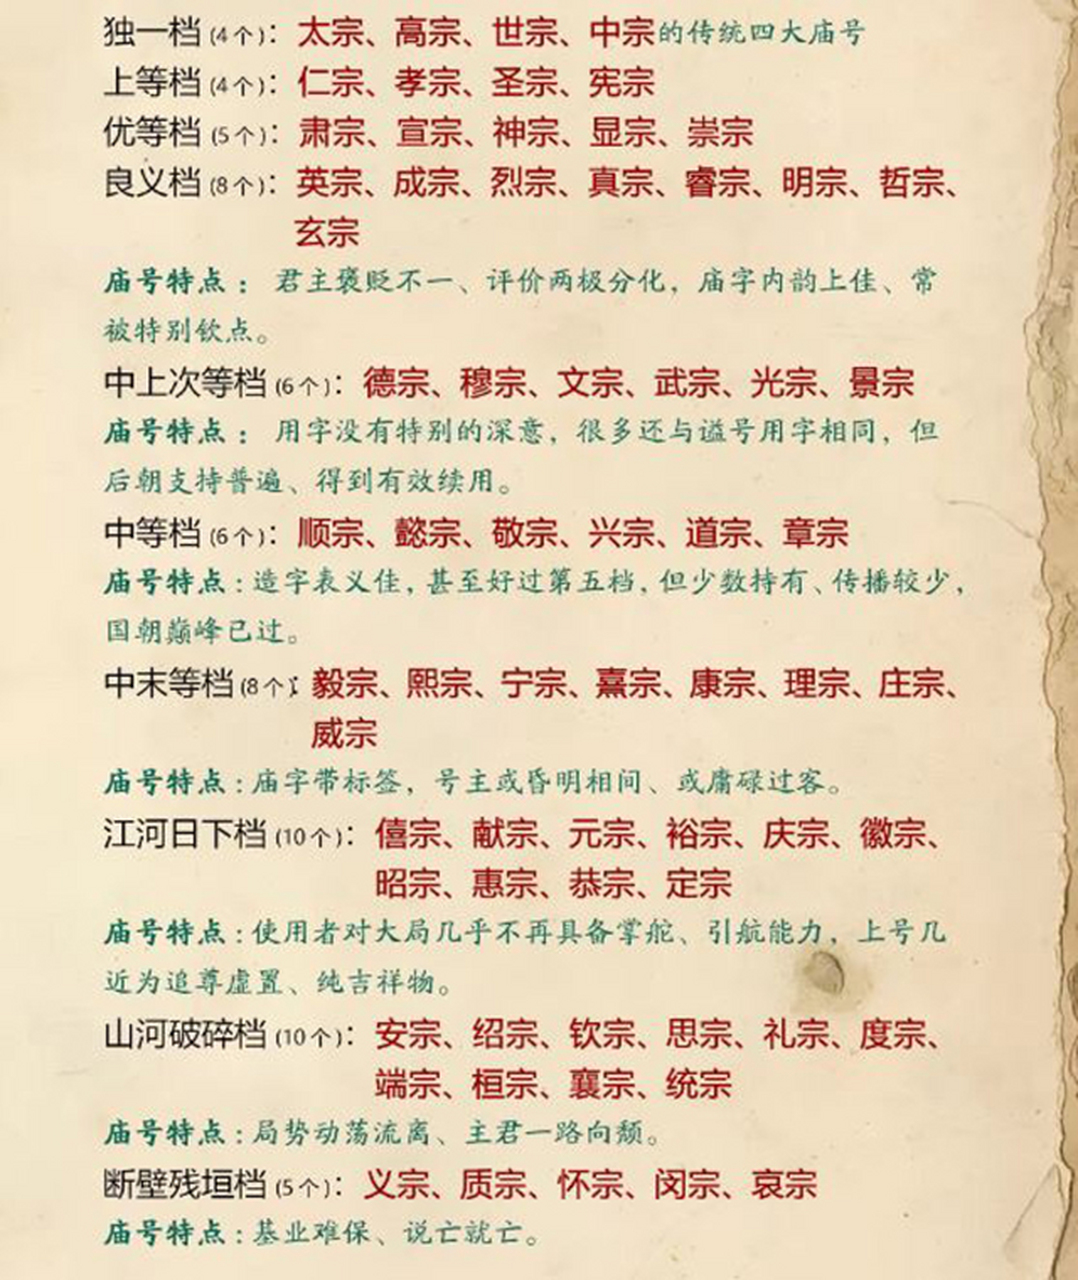 独一档(4个)：太宗、高宗、世宗、中宗的传统四大庙号
上等档(4个)：仁宗、孝宗、圣宗、宪宗
优等档(5个)：肃宗、宣宗、神宗、显宗、崇宗
良义档(8个)：英宗、成宗、烈宗、真宗、睿宗、明宗、哲宗、
玄宗
庙号特点：君主褒贬不一、评价两极分化，庙字内韵上佳、常
被特别钦点。
中上次等档(6个)：德宗、穆宗、文宗、武宗、光宗、景宗
庙号特点：用字没有特别的深意，很多还与谥号用字相同，但
后朝支持普遍、得到有效续用。
中等档(6个)：顺宗、懿宗、敬宗、兴宗、道宗、章宗
庙号特点：造字表义佳，甚至好过第五档，但少数持有、传播较少，
国朝巅峰已过。
中末等档(8个)：毅宗、熙宗、宁宗、熹宗、康宗、理宗、庄宗、
威宗
庙号特点：庙字带标签，号主或昏明相间、或庸碌过客。
江河日下档(10个)：僖宗、献宗、元宗、裕宗、庆宗、徽宗、
昭宗、惠宗、恭宗、定宗
庙号特点：使用者对大局几乎不再具备掌舵、引航能力，上号几
近为追尊虚置、纯吉祥物。
山河破碎档(10个)：安宗、绍宗、钦宗、思宗、礼宗、度宗、
端宗、桓宗、襄宗、统宗
庙号特点：局势动荡流离、主君一路向颓。
断壁残垣档(5个)：义宗、质宗、怀宗、闵宗、哀宗
庙号特点：基业难保、说亡就亡。